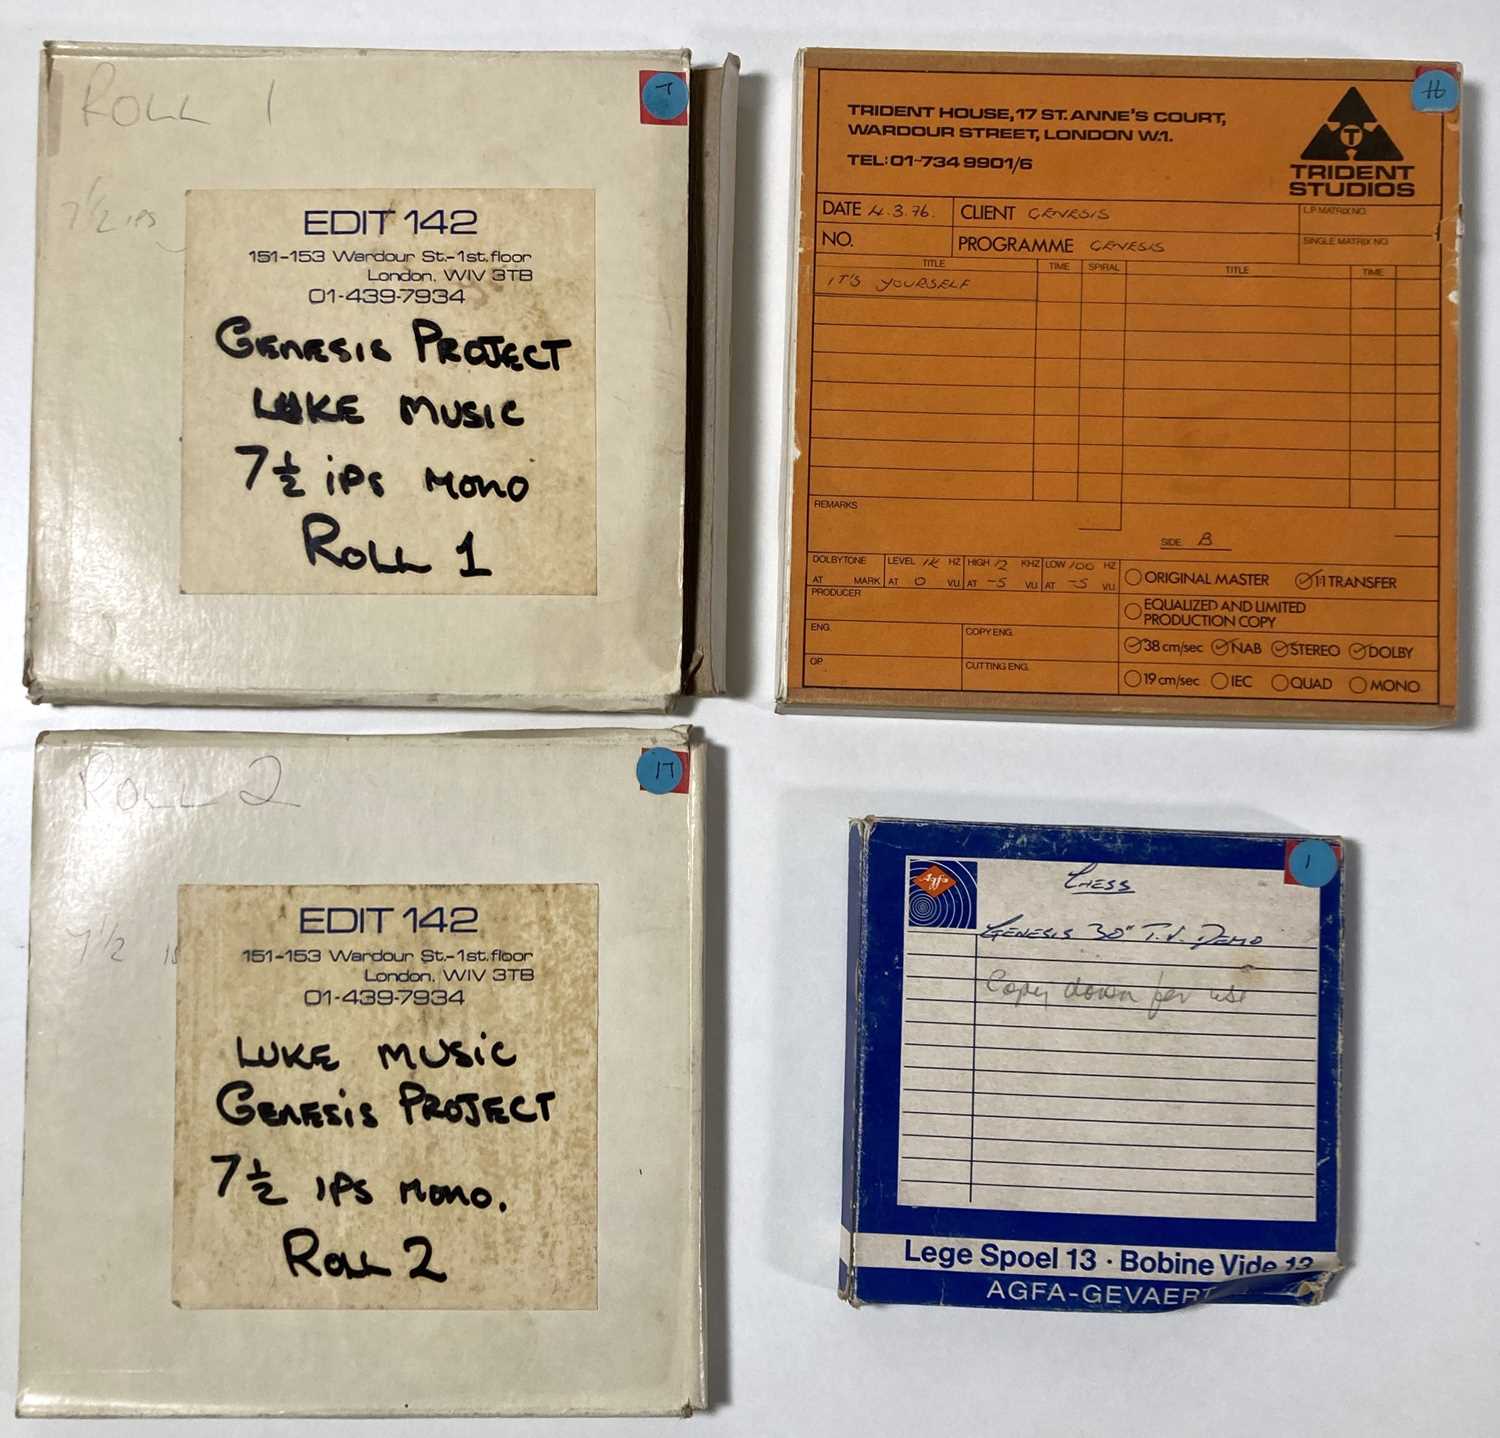 ROLL 1
7
7 1/2 IPS
EDIT 142
151-153 Wardour St.-1st.floor
London. WIV 3TB
01-439-7934
GENESIS PROJECT
LUKE MUSIC
7 1/2 iPS MONO
ROLL 1
16
TRIDENT HOUSE, 17 ST. ANNE'S COURT,
WARDOUR STREET, LONDON W.1.
TEL: 01-734 9901/6
T
TRIDENT
STUDIOS
DATE 4.3.76. CLIENT GENESIS L.P. MATRIX NO.
NO. PROGRAMME GENESIS SINGLE MATRIX NO
TITLE TIME SPIRAL TITLE TIME
IT'S YOURSELF
REMARKS
SIDE B
DOLBYTONE LEVEL 1K HZ HIGH 12 KHZ LOW 100 HZ
AT MARK AT 0 VU AT -5 VU AT -5 VU
ORIGINAL MASTER 1:1 TRANSFER
PRODUCER
EQUALIZED AND LIMITED
PRODUCTION COPY
ENG. COPY ENG.
38 cm/sec NAB STEREO DOLBY
OP CUTTING ENG.
19 cm/sec IEC QUAD MONO
ROLL 2
17
7 1/2
EDIT 142
151-153 Wardour St.-1st.floor
London. WIV 3TB
01-439-7934
LUKE MUSIC
GENESIS PROJECT
7 1/2 IPS MONO.
ROLL 2
1
CHESS
GENESIS 30" T.V. DEMO
Copy down for use
Lege Spoel 13 · Bobine Vide 13
AGFA-GEVAERT